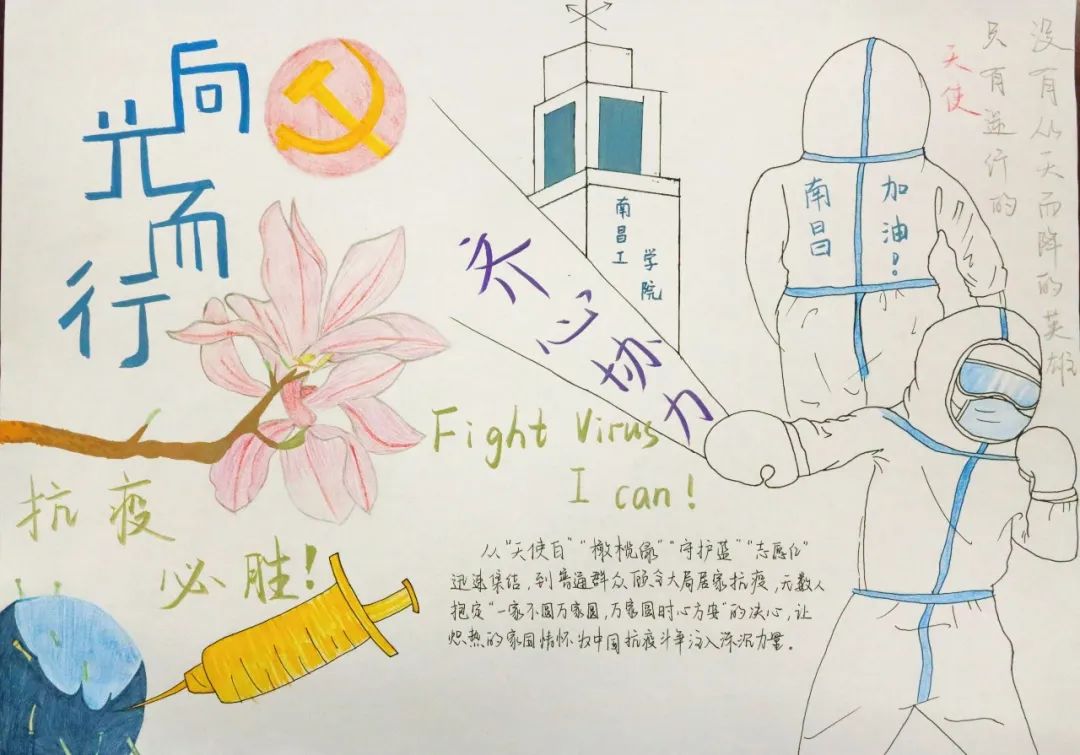 向
光
而
行
齐心协力
南昌工
学院
南昌
加油!
没有从天而降的英雄
只有逆行的
天使
Fight Virus
I can!
抗疫
必胜!
从“天使白”“橄榄绿”“守护蓝”“志愿红”
迅速集结,到普通群众顾全大局居家抗疫,无数人
抱定“一家不圆万家圆,万家圆时心方安”的决心,让
炽热的家国情怀为中国抗疫斗争注入深沉力量。